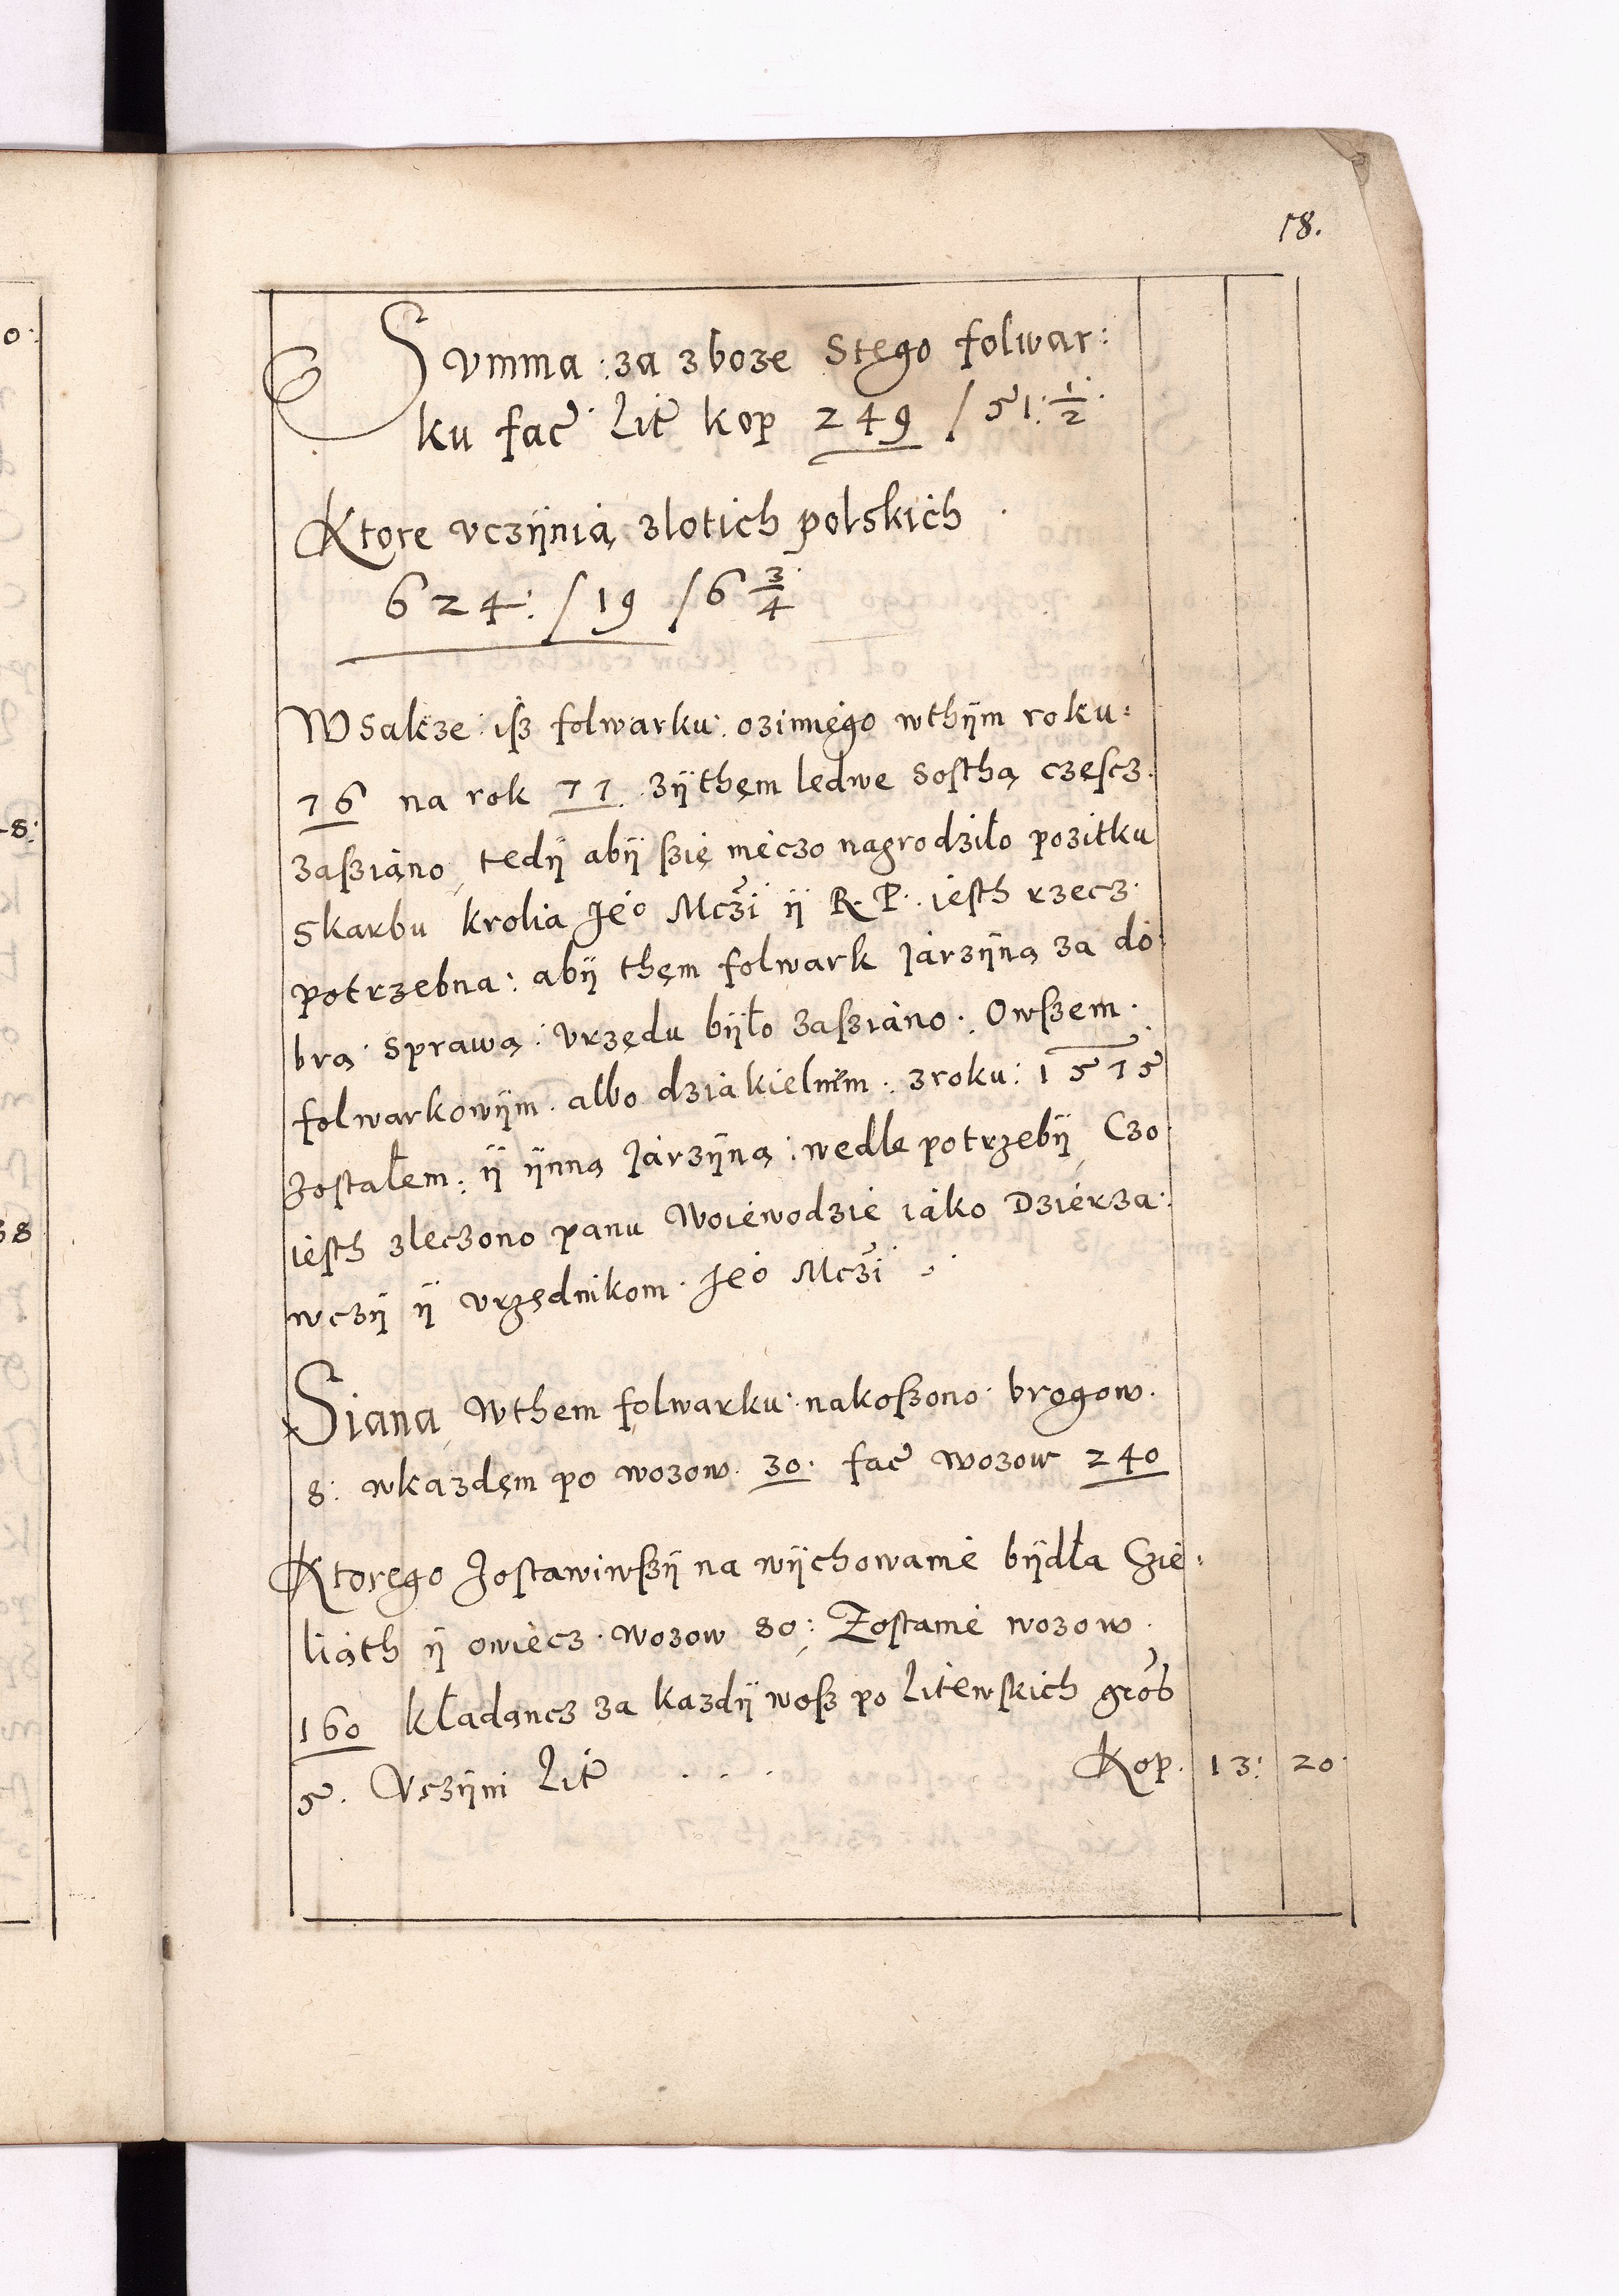 18.
Summa za zboze Stęgo folwar:
ku fac̃ Lit̃ kop 249 / 51: 1/2
Ktore vczÿnią zlotich polskich
624: / 19 / 6 3/4
Wsakze isz folwarku ozimnęgo wthÿm roku:
76 na rok 77 zÿthęm ledwe sosthą częscz
zasziąno, tedÿ abÿ szię mėczo nagrodziło pozitku
Skarbu krolia Jėo Mczĩ ÿ R. P. iesth rzecz
potrzebna: abÿ thęm folwark Jarzÿną za do
brą sprawą vrzędu bÿło zasziano. Owszem
folwarkowÿm albo dziakielnėm zroku: 1575
Zostałem: ÿ ÿnną Jarzÿną: wedle potrzebÿ, Czo
iesth zleczono panu Woiewodzie iako Dzierza:
wczÿ ÿ vrzędnikom Jėo Mczĩ
Siana Wthem folwarku nakoszono brogow
8: wkazdęm po wozow 30: fac̃ wozow 240
Ktoręgo Zostawiwszÿ na wÿchowanie bÿdła Czie:
liąth ÿ owiecz wozow 80: Zostanie wozow
160 kładąncz za kazdÿ wosz po Litewskich gros̃
5. Vczÿni Lit̃ . . . Kop. 13: 20